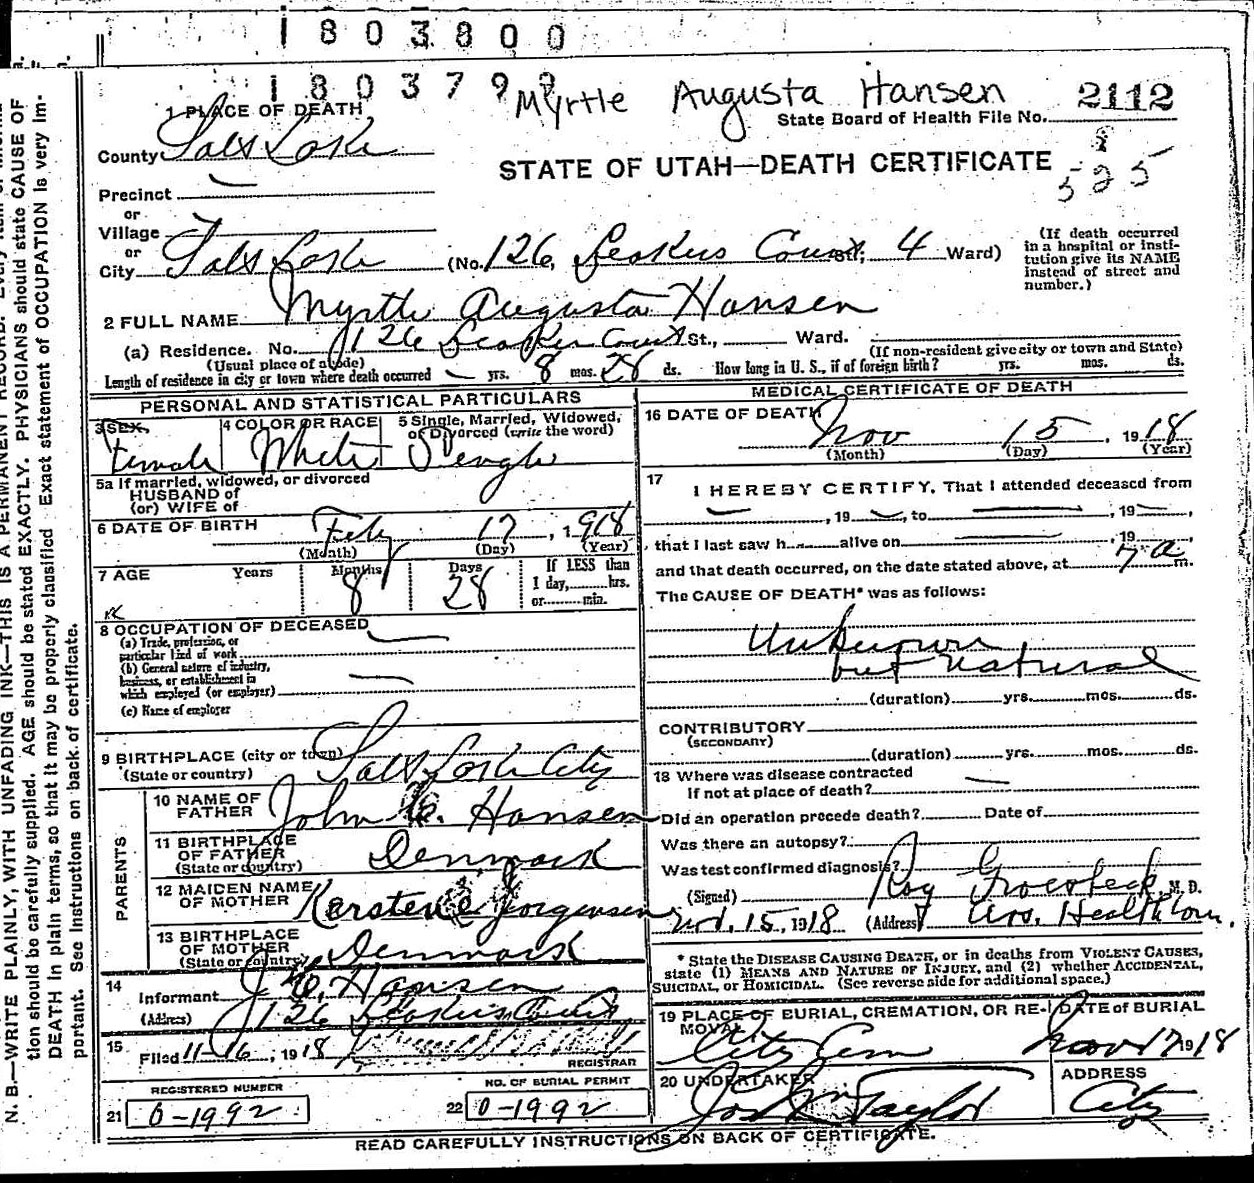 1803800
1803799
Myrtle Augusta Hansen
2112
State Board of Health File No.
1 PLACE OF DEATH
County Salt Lake
STATE OF UTAH—DEATH CERTIFICATE
525
Precinct
or
Village
or
City Salt Lake (No. 126, Court St., 4 Ward)
(If death occurred
in a hospital or insti-
tution give its NAME
instead of street and
number.)
2 FULL NAME Myrtle Augusta Hansen
(a) Residence. No. 126 Court St., Ward.
(Usual place of abode)
(If non-resident give city or town and State)
Length of residence in city or town where death occurred — yrs. 8 mos. 28 ds. How long in U. S., if of foreign birth? yrs. mos. ds.
PERSONAL AND STATISTICAL PARTICULARS
3 SEX
Female
4 COLOR OR RACE
White
5 Single, Married, Widowed,
or Divorced (write the word)
Single
5a If married, widowed, or divorced
HUSBAND of
(or) WIFE of
6 DATE OF BIRTH Feby 17, 1918
(Month) (Day) (Year)
7 AGE Years Months Days
8 28
If LESS than
1 day, hrs.
or min.
8 OCCUPATION OF DECEASED
(a) Trade, profession, or
particular kind of work
(b) General nature of industry,
business, or establishment in
which employed (or employer)
(c) Name of employer
9 BIRTHPLACE (city or town) Salt Lake City
(State or country)
PARENTS
10 NAME OF
FATHER John Hansen
11 BIRTHPLACE
OF FATHER Denmark
(State or country)
12 MAIDEN NAME
OF MOTHER Karstene Jorgensen
13 BIRTHPLACE
OF MOTHER Denmark
(State or country)
14
Informant J. Hansen
(Address) 126 Court
15
Filed 11-16, 1918
REGISTRAR
REGISTERED NUMBER
21 0-1992
NO. OF BURIAL PERMIT
22 0-1992
MEDICAL CERTIFICATE OF DEATH
16 DATE OF DEATH
Nov 15, 1918
(Month) (Day) (Year)
17
I HEREBY CERTIFY, That I attended deceased from
—, 19—, to —, 19—,
that I last saw h alive on —, 19
and that death occurred, on the date stated above, at 7 a m.
The CAUSE OF DEATH* was as follows:
Unknown
but natural
(duration) yrs. mos. ds.
CONTRIBUTORY
(SECONDARY)
(duration) yrs. mos. ds.
18 Where was disease contracted
If not at place of death?
Did an operation precede death? Date of
Was there an autopsy?
Was test confirmed diagnosis?
(Signed) Roy Groesbeck, M. D.
Nov. 15, 1918 (Address) Health Com.
* State the DISEASE CAUSING DEATH, or in deaths from VIOLENT CAUSES,
state (1) MEANS AND NATURE OF INJURY, and (2) whether ACCIDENTAL,
SUICIDAL, or HOMICIDAL. (See reverse side for additional space.)
19 PLACE OF BURIAL, CREMATION, OR RE-
MOVAL
City Cem
DATE OF BURIAL
Nov 17 1918
20 UNDERTAKER
Jos Wm Taylor
ADDRESS
City
READ CAREFULLY INSTRUCTIONS ON BACK OF CERTIFICATE.
N. B.—WRITE PLAINLY, WITH UNFADING INK—THIS IS A PERMANENT RECORD. Every item of
tion should be carefully supplied. AGE should be stated EXACTLY. PHYSICIANS should state CAUSE OF
DEATH in plain terms, so that it may be properly classified. Exact statement of OCCUPATION is very im-
portant. See Instructions on back of certificate.